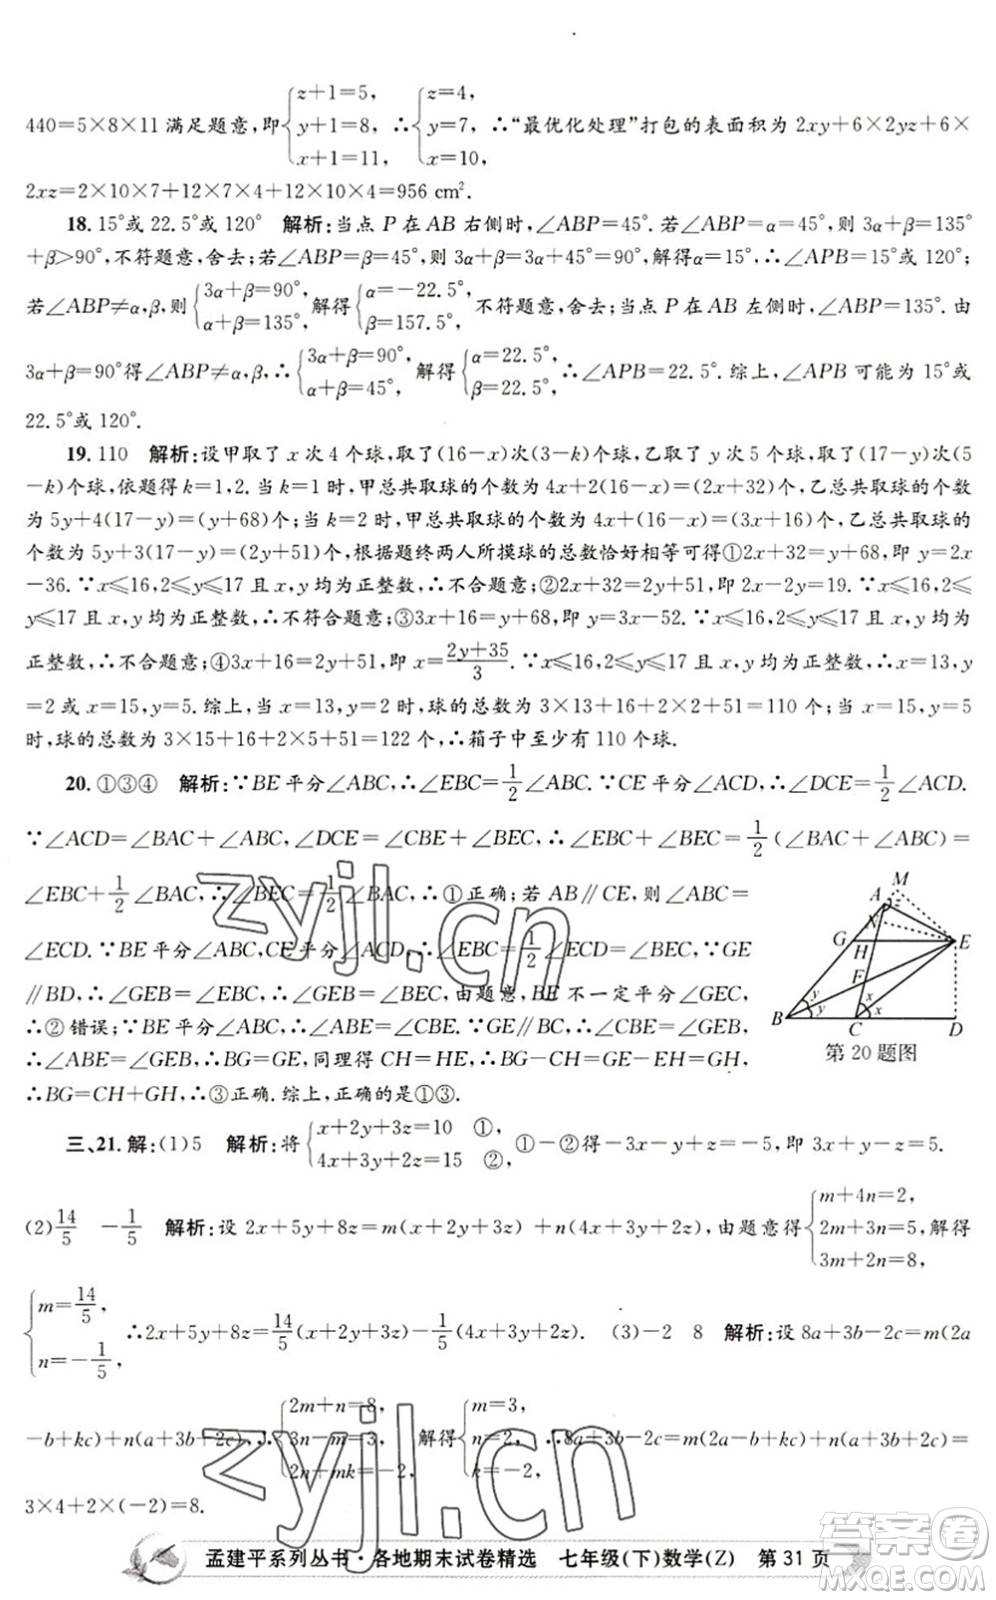 440=5×8×11 满足题意,即{z+1=5, y+1=8, x+11=11, ∴{z=4, y=7, x=10, ∴“最优化处理”打包的表面积为 2xy+6×2yz+6×
2xz=2×10×7+12×7×4+12×10×4=956 cm².
18. 15°或 22.5°或 120° 解析:当点 P 在 AB 右侧时,∠ABP=45°. 若∠ABP=α=45°, 则 3α+β=135°
+β>90°, 不符题意, 舍去; 若∠ABP=β=45°, 则 3α+β=3α+45°=90°, 解得α=15°, ∴∠APB=15°或 120°;
若∠ABP≠α,β,则{3α+β=90°, α+β=135°, 解得{α=-22.5°, β=157.5°, 不符题意,舍去;当点 P 在 AB 左侧时,∠ABP=135°. 由
3α+β=90°得∠ABP≠α,β,∴{3α+β=90°, α+β=45°, 解得{α=22.5°, β=22.5°, ∴∠APB=22.5°. 综上,∠APB 可能为 15°或
22.5°或 120°.
19. 110 解析:设甲取了 x 次 4 个球,取了(16-x)次(3-k)个球,乙取了 y 次 5 个球,取了(17-y)次(5
-k)个球,依题得 k=1,2. 当 k=1 时,甲总共取球的个数为 4x+2(16-x)=(2x+32)个,乙总共取球的个数
为 5y+4(17-y)=(y+68)个;当 k=2 时,甲总共取球的个数为 4x+(16-x)=(3x+16)个,乙总共取球的
个数为 5y+3(17-y)=(2y+51)个,根据题终两人所摸球的总数恰好相等可得①2x+32=y+68,即 y=2x
-36. ∵x≤16,2≤y≤17 且 x,y均为正整数,∴不合题意;②2x+32=2y+51,即 2x-2y=19. ∵x≤16,2≤
y≤17 且 x,y均为正整数,∴不符合题意;③3x+16=y+68,即 y=3x-52. ∵x≤16,2≤y≤17 且 x,y均为
正整数,∴不合题意;④3x+16=2y+51,即 x=(2y+35)/3. ∵x≤16,2≤y≤17 且 x,y 均为正整数,∴x=13,y
=2 或 x=15,y=5. 综上,当 x=13,y=2 时,球的总数为 3×13+16+2×2+51=110 个;当 x=15,y=5
时,球的总数为 3×15+16+2×5+51=122 个,∴箱子中至少有 110 个球.
20. ①③④ 解析:∵BE 平分∠ABC,∴∠EBC=1/2∠ABC. ∵CE 平分∠ACD,∴∠DCE=1/2∠ACD.
∵∠ACD=∠BAC+∠ABC,∠DCE=∠CBE+∠BEC,∴∠EBC+∠BEC=1/2(∠BAC+∠ABC)=
∠EBC+1/2∠BAC,∴∠BEC=1/2∠BAC,∴①正确;若 AB∥CE,则∠ABC=
∠ECD. ∵BE 平分∠ABC,CE 平分∠ACD,∴∠EBC=1/2∠ECD=∠BEC,∵GE
∥BD,∴∠GEB=∠EBC=∠BEC,由题意,BE 不一定平分∠GEC,
∴②错误;∵BE 平分∠ABC,∴∠ABE=∠CBE. ∵GE∥BC,∴∠CBE=∠GEB,
∴∠ABE=∠GEB,∴BG=GE,同理得 CH=HE,∴BG=GE=GH+HE=GH+CH,
∴BG=CH+GH,∴③正确.综上,正确的是①③.
A M z N G H E F y y x x B C D
第 20 题图
三、21. 解:(1)5 解析:将{x+2y+3z=10 ①, 4x+3y+2z=15 ②, ①-②得-3x-y+z=-5,即 3x+y-z=5.
(2)14/5 -1/5 解析:设 2x+5y+8z=m(x+2y+3z)+n(4x+3y+2z),由题意得{m+4n=2, 2m+3n=5, 3m+2n=8, 解得
{m=14/5, n=-1/5, ∴2x+5y+8z=14/5(x+2y+3z)-1/5(4x+3y+2z). (3)-2 8 解析:设 8a+3b-2c=m(2a
-b+kc)+n(a+3b+2c),∴{2m+n=8, 3n-m=3, 2n+mk=-2, 解得{m=3, n=2, k=-2, ∴8a+3b-2c=m(2a-b+kc)+n(a+3b+2c)=
3×4+2×(-2)=8.
zyjl.cn
zyjl.cn
孟建平系列丛书·各地期末试卷精选 七年级(下)数学(Z) 第 31 页
答案圈
MXQE.COM